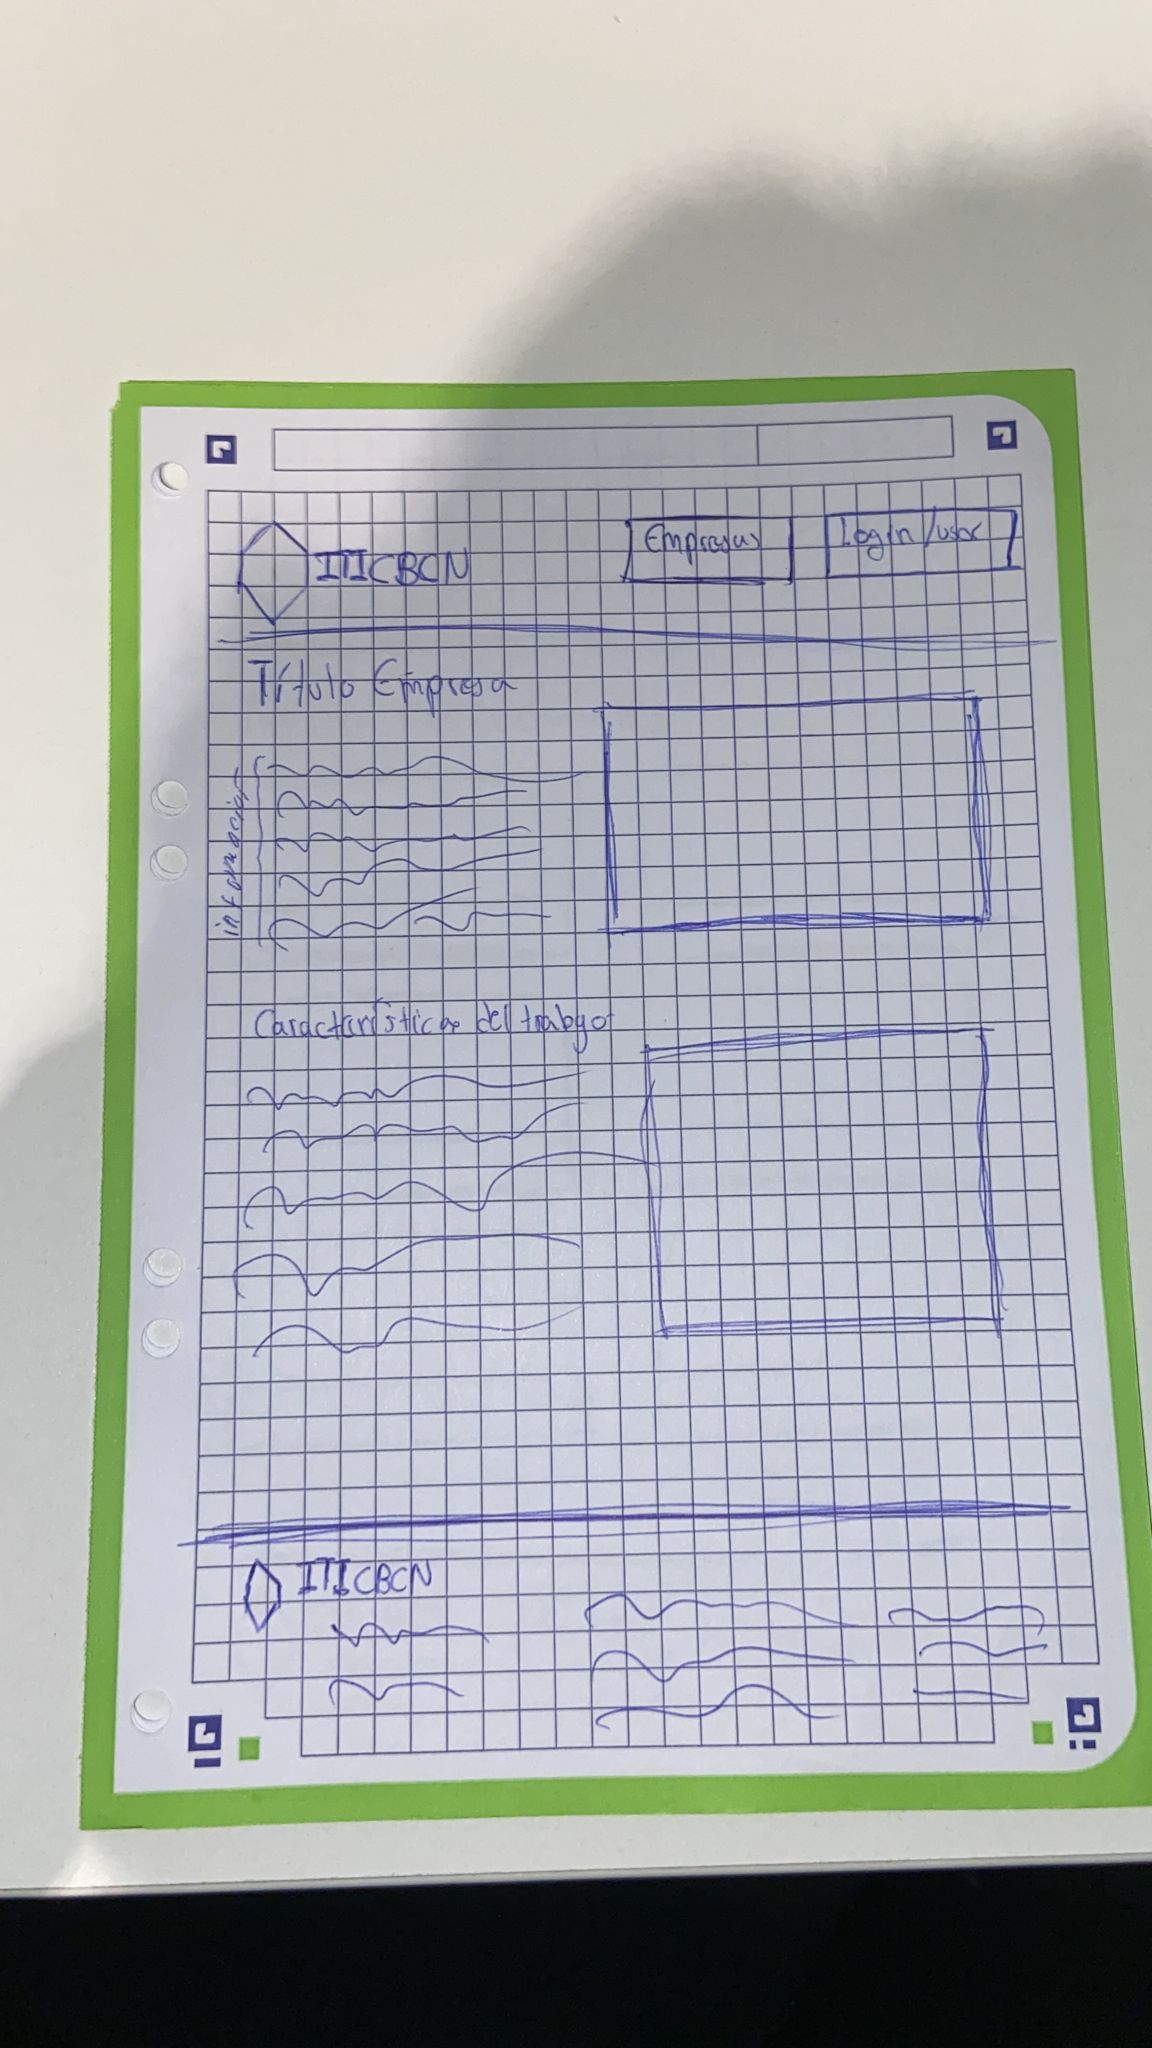 ITICBCN
Empresas
Login/user
Título Empresa
información
Características del trabajo
ITICBCN